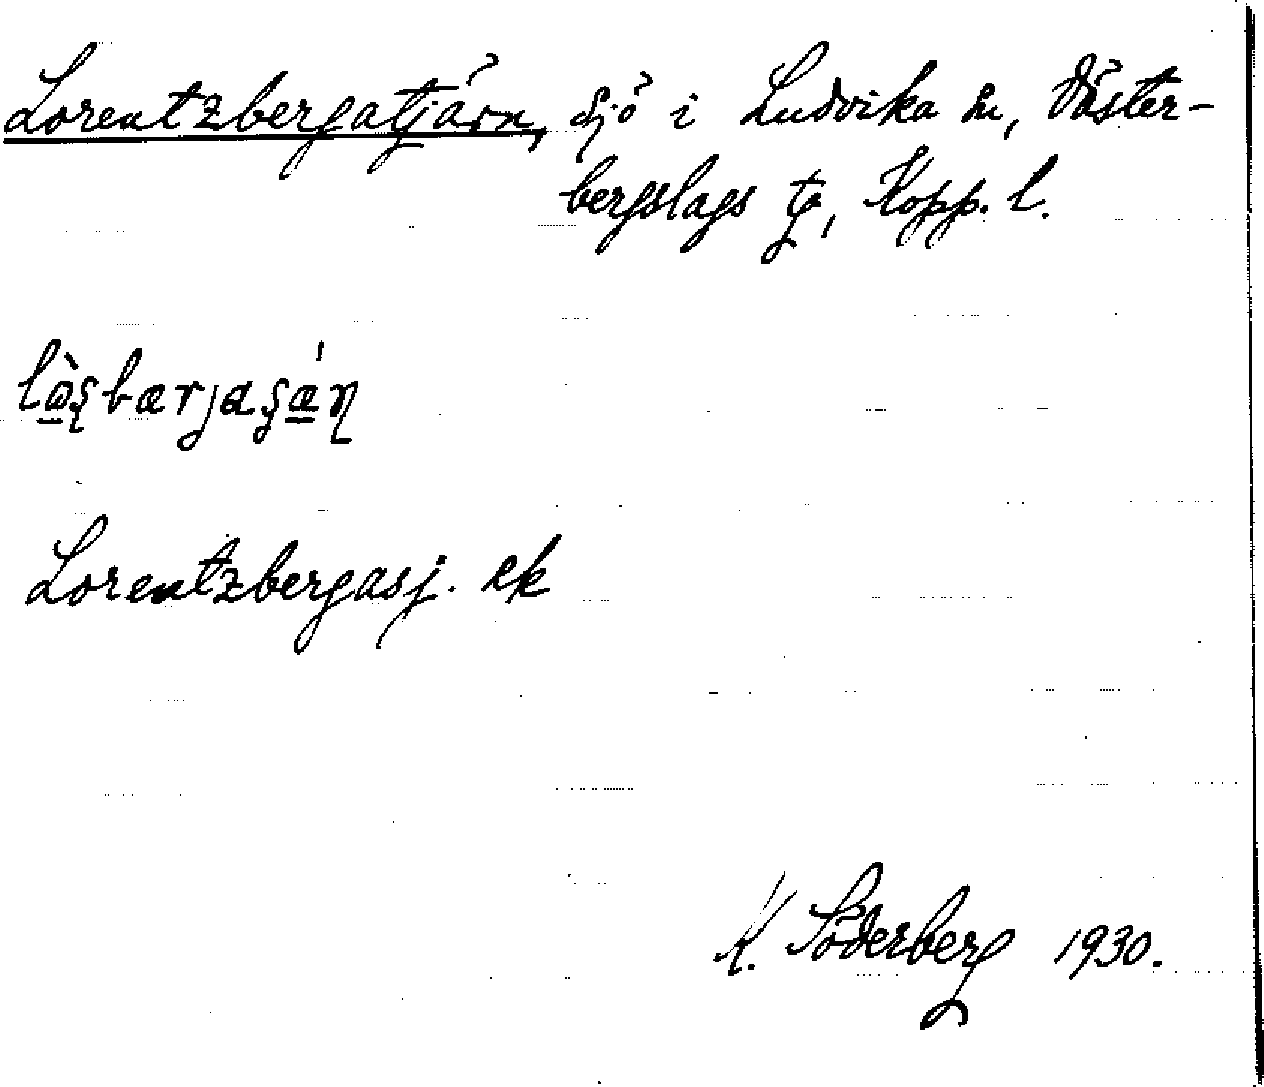 Lorentzbergatjärn, sjö i Ludvika sn, Väster-
bergslags tg, Kopp. l.
Lorentzbergasj. ek
K. Söderberg 1930.